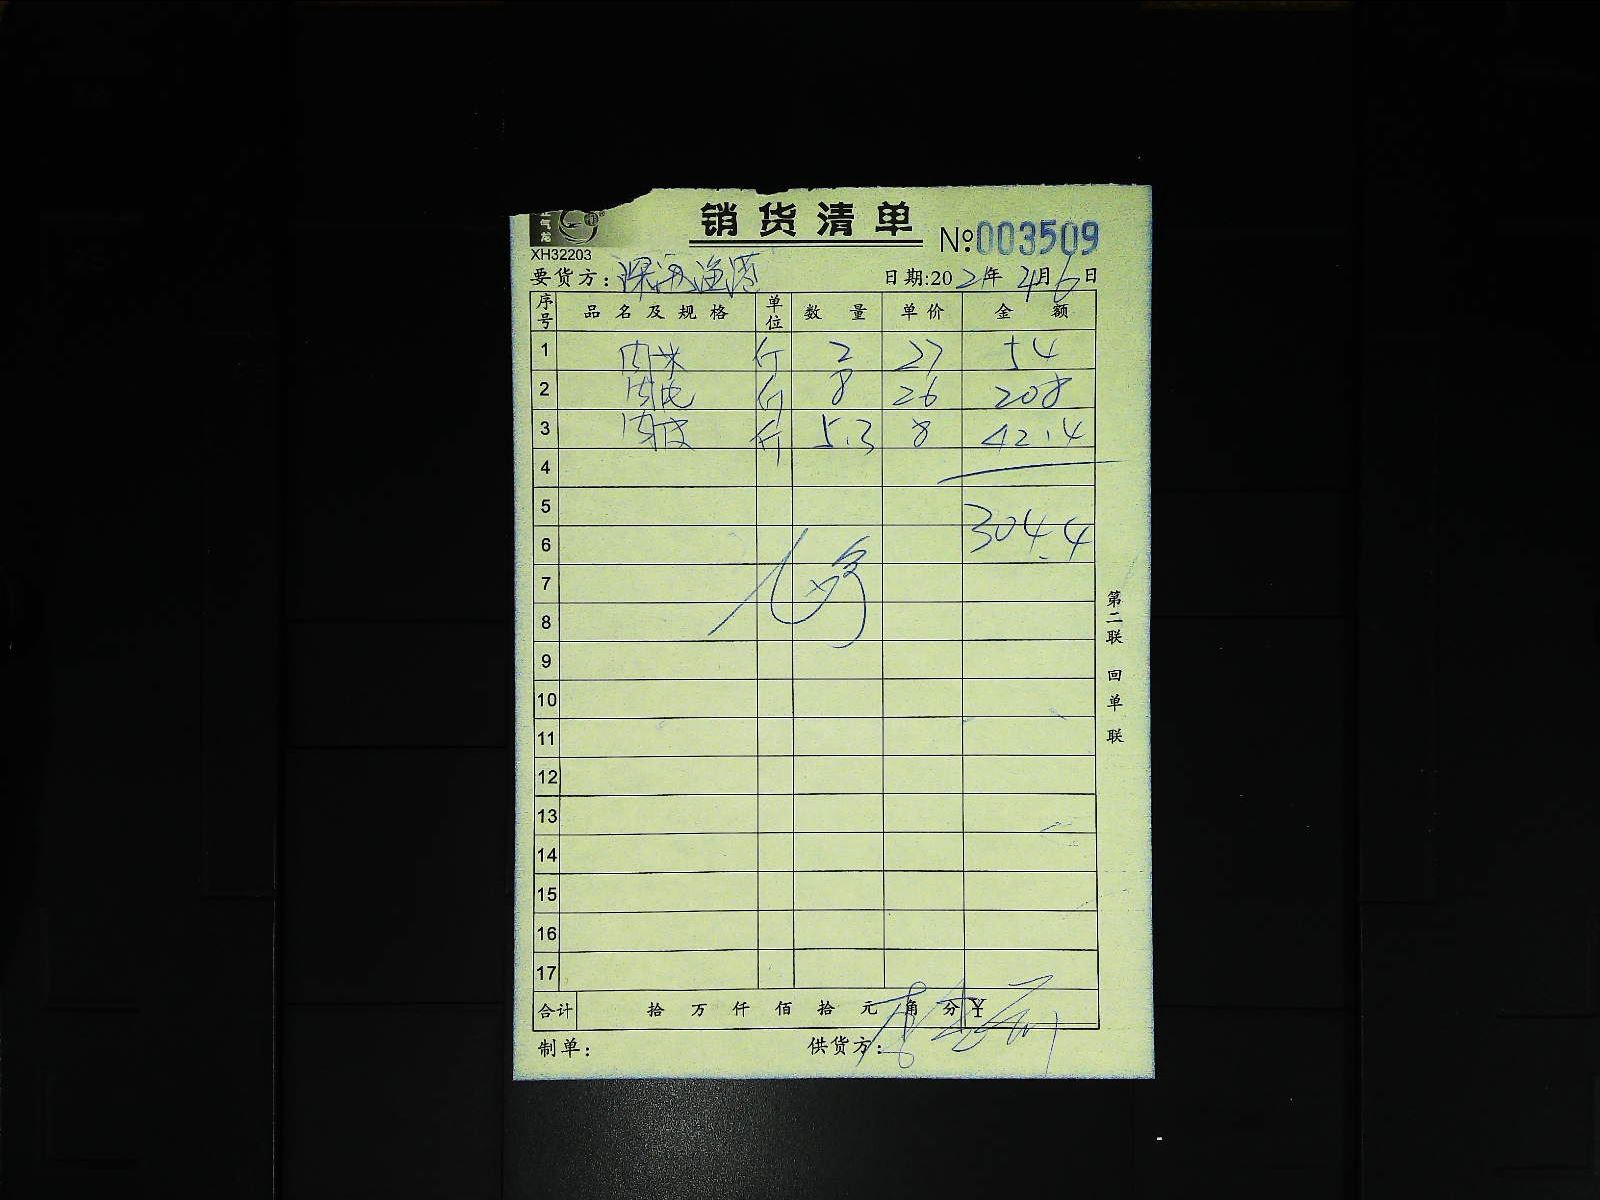 气
龙
XH32203
销货清单
№:003509
要货方:深海渔港 日期:2021年4月6日
序号 品名及规格 单位 数量 单价 金额
1 肉米 斤 2 27 54
2 斤 8 26 208
3 肉皮 斤 5.3 8 42.4
4
5
304.4
6
7
8
9
10
11
12
13
14
15
16
17
合计 拾 万 仟 佰 拾 元 角 分 ¥
制单: 供货方:
第二联 回单联